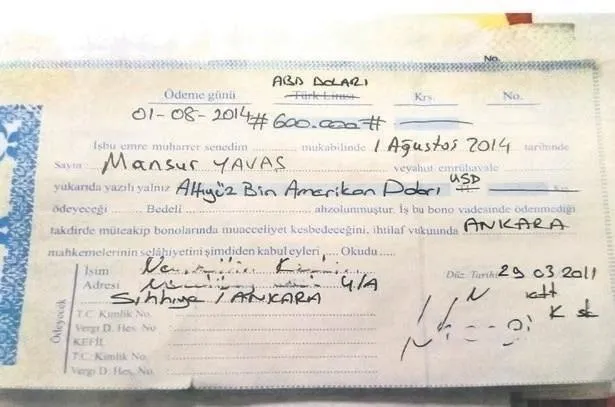 No.
ABD DOLARI
Ödeme günü Türk Lirası Krş. No.
01-08-2014 #600.000#
İşbu emre muharrer senedim ........ mukabilinde 1 Ağustos 2014 tarihinde
Sayın Mansur YAVAŞ veyahut emrühavale
yukarıda yazılı yalnız Altıyüz Bin Amerikan Doları USD Krş.
ödeyeceğim ........ Bedeli ........ ahzolunmuştur. İş bu bono vadesinde ödenmediği
takdirde müteakip bonolarında muacceliyet kesbedeceğini, ihtilaf vukuunda ANKARA
mahkemelerinin selâhiyetini şimdiden kabul eyleri .... Okudu .....
İsim
Düz. Tarihi 29 03 2011
Adresi 4/A
Sıhhiye / ANKARA
Ödeyecek
T.C. Kimlik No.
Vergi D. Hes. No
KEFİL
T.C. Kimlik No.
Vergi D. Hes. No.